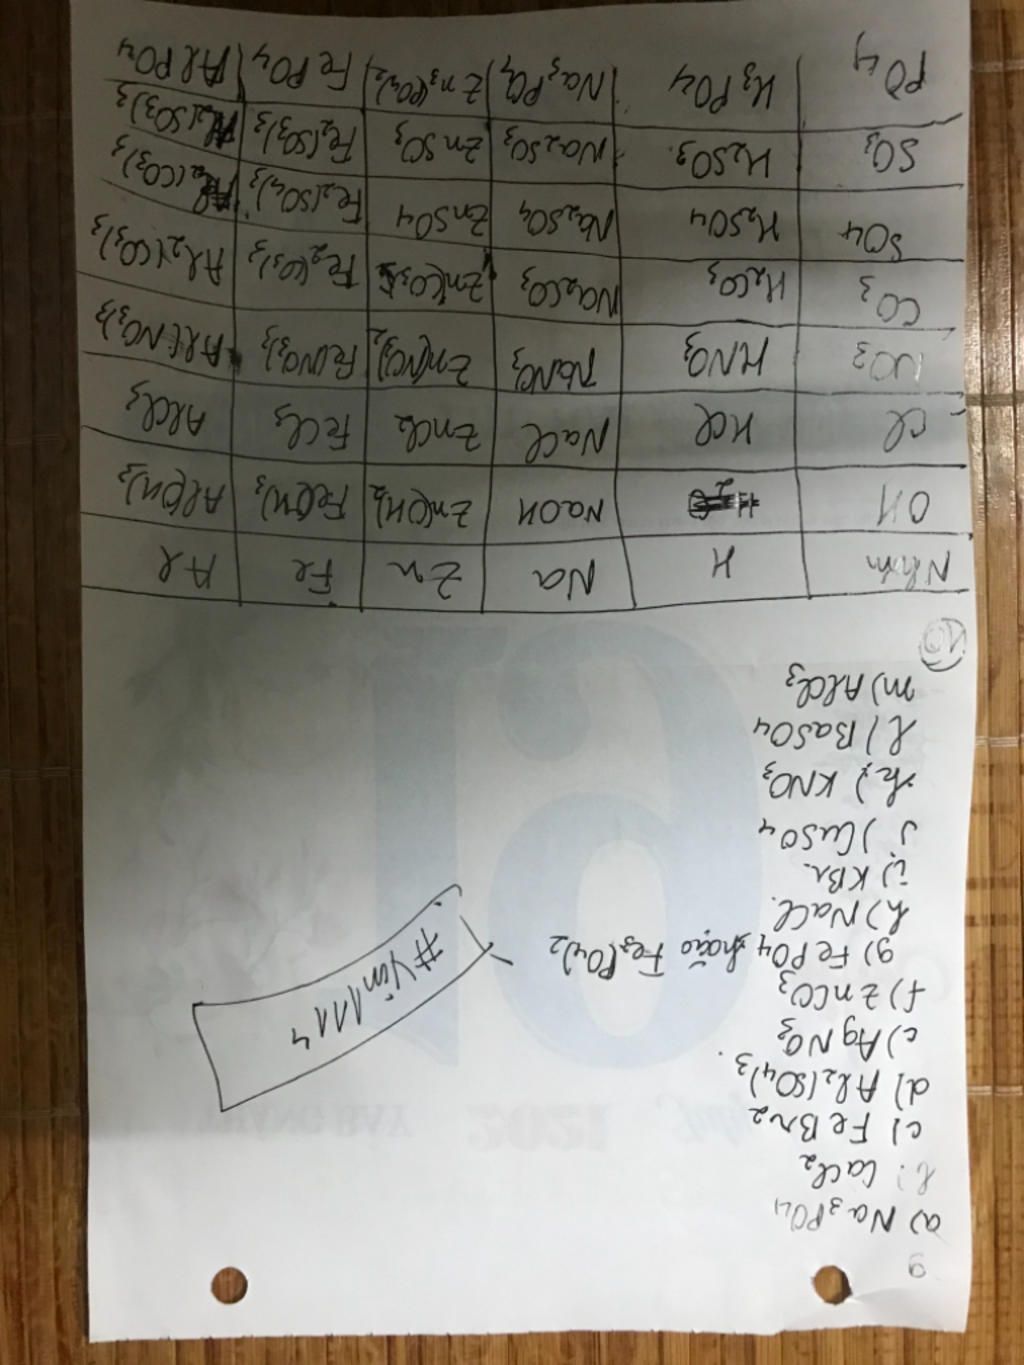 9
a) Na3PO4
b) CaCl2
c) FeBr2
d) Al2(SO4)3.
c) AgNO3
f) ZnCO3
g) FePO4 hoặc Fe3(PO4)2
h) NaCl.
i) KBr.
j) CuSO4
k) KNO3
l) BaSO4
m) AlCl3
#Yin1114
10
Nhóm H Na Zn Fe Al
OH NaOH Zn(OH)2 Fe(OH)3 Al(OH)3
Cl HCl NaCl ZnCl2 FeCl3 AlCl3
NO3 HNO3 NaNO3 Zn(NO3)2 Fe(NO3)3 Al(NO3)3
CO3 H2CO3 Na2CO3 Fe2(CO3)3 Al2(CO3)3
SO4 H2SO4 Na2SO4 ZnSO4 Fe2(SO4)3 Al2(CO3)3
SO3 H2SO3. Na2SO3 ZnSO3 Fe2(SO3)3 Al2(SO3)3
PO4 H3PO4 Na3PO4 Zn3(PO4)2 FePO4 AlPO4